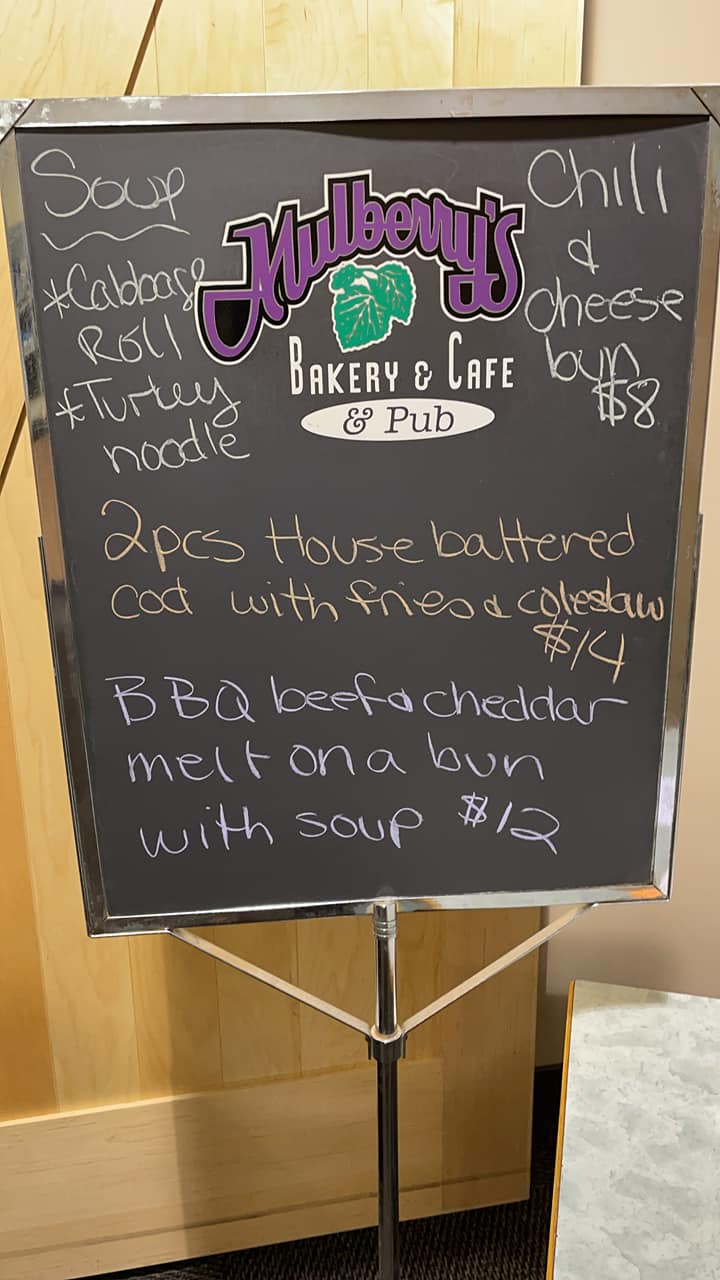 Soup
*Cabbage
Roll
*Turkey
noodle
Mulberry's
BAKERY & CAFE
& Pub
Chili
&
cheese
bun
$8
2pcs House battered
cod with fries & coleslaw
$14
BBQ beef & cheddar
melt on a bun
with soup $12